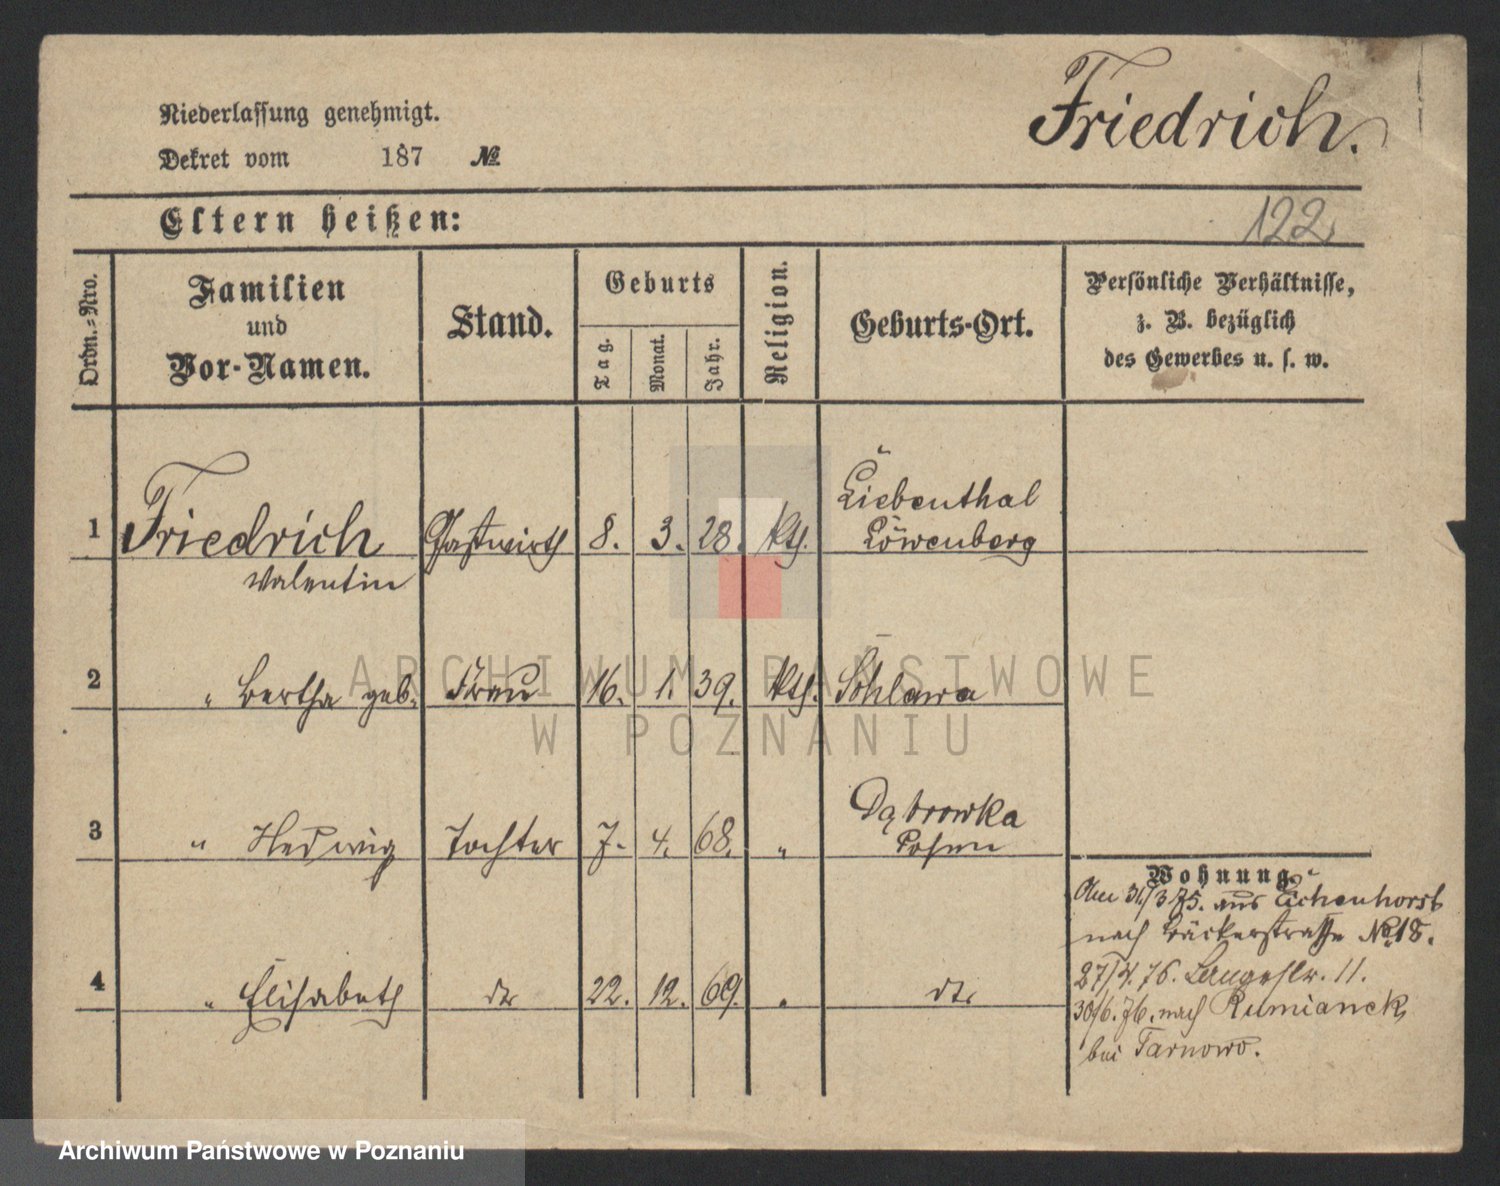 Friedrich.
Niederlassung genehmigt.
Dekret vom 187 №
Eltern heißen:
122
Ordn.-Nro.
Familien
und
Vor-Namen.
Stand.
Geburts
Tag.
Monat.
Jahr.
Religion.
Geburts-Ort.
Persönliche Verhältnisse,
z. B. bezüglich
des Gewerbes u. s. w.
1 Friedrich Gastwirth 8. 3. 28. kth. Liebenthal
Löwenberg
Valentin
2 " Bertha geb. Frau 16. 1. 39. kth. Schlawa
3 " Hedwig Tochter 7. 4. 68. " Dąbrowka
Posen
4 " Elisabeth dto 22. 12. 69. " dto
Wohnung.
Am 31/3 75. aus Eichenhorst
nach Bäckerstraße № 18.
27/4. 76. Langestr. 11.
30/6. 76. nach Rumianek
bei Tarnowo.
ARCHIWUM PAŃSTWOWE
W POZNANIU
Archiwum Państwowe w Poznaniu